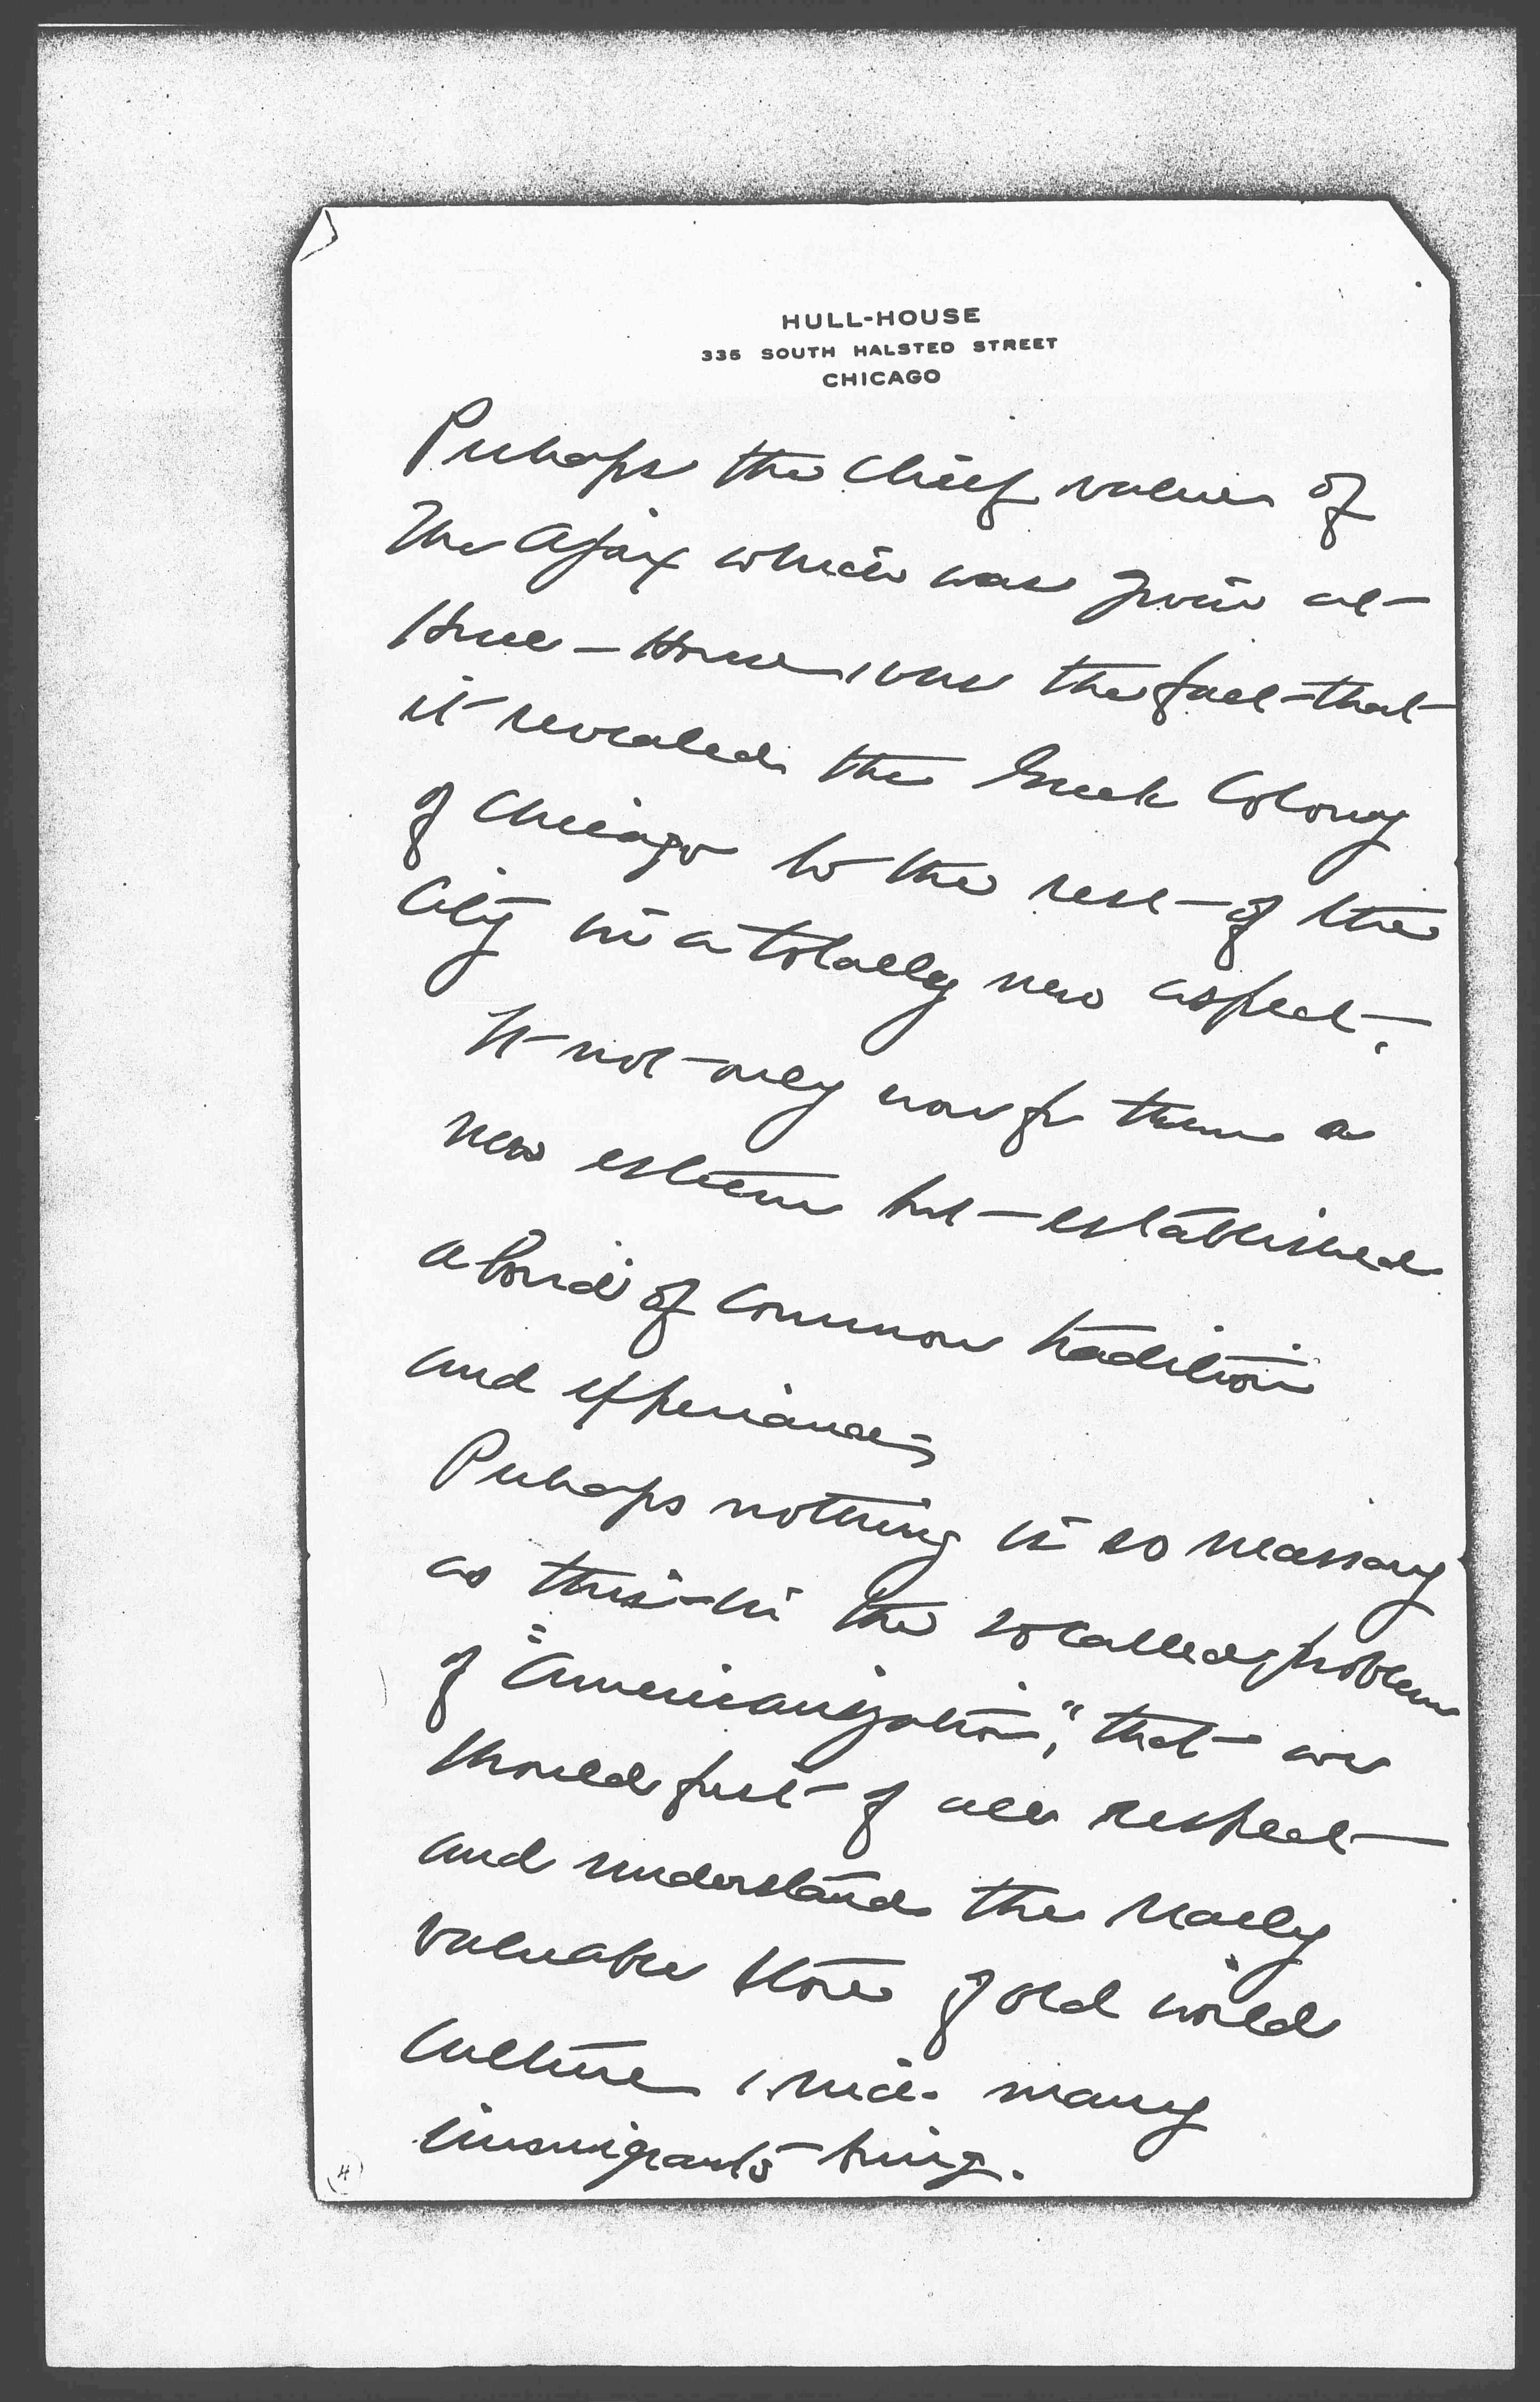 HULL-HOUSE
335 SOUTH HALSTED STREET
CHICAGO
Perhaps the chief value of
The Ajax which was given at
Hull-House was the fact that
it revealed the Greek Colony
of Chicago to the rest of the
City in a totally new aspect.
It not only won for them a
new esteem but established
a bond of common tradition
and experience
Perhaps nothing is so necessary
as this in the so called problem
of "Americanization," that we
should first of all respect
and understand the really
valuable store of old world
culture which many
immigrants bring.